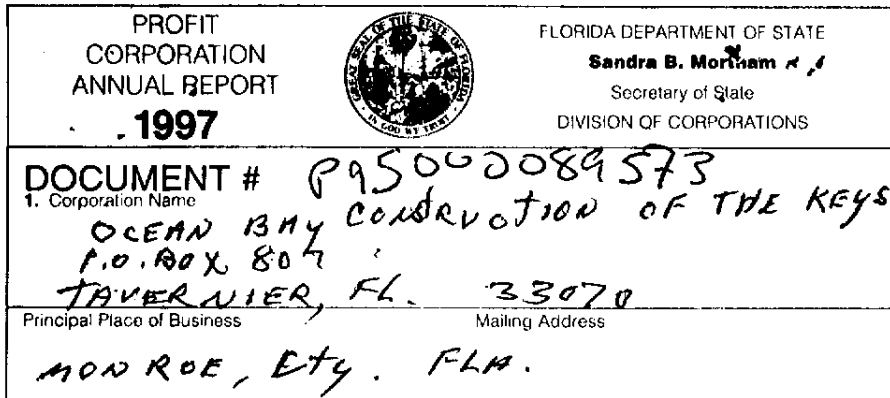 PROFIT
CORPORATION
ANNUAL REPORT
1997
GREAT SEAL OF THE STATE OF FLORIDA
IN GOD WE TRUST
FLORIDA DEPARTMENT OF STATE
Sandra B. Mortham
Secretary of State
DIVISION OF CORPORATIONS
DOCUMENT # P95000089573
1. Corporation Name
OCEAN BAY CONSTRUCTION OF THE KEYS
P.O. BOX 807
TAVERNIER, FL. 33070
Principal Place of Business Mailing Address
MONROE, Cty. FLA.